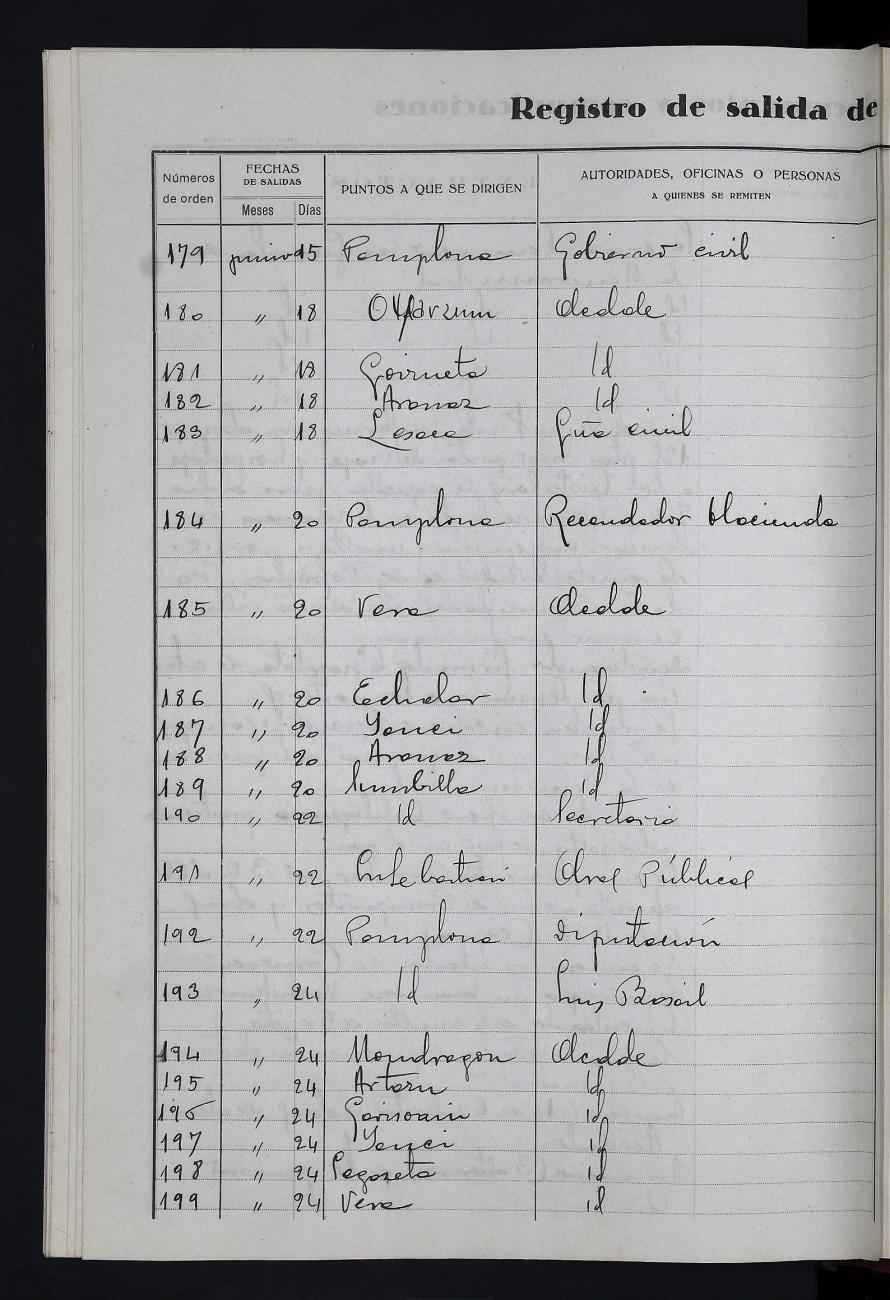 Registro de salida de
Números de orden
FECHAS DE SALIDAS
Meses Días
PUNTOS A QUE SE DIRIGEN
AUTORIDADES, OFICINAS O PERSONAS
A QUIENES SE REMITEN
179 junio 15 Pamplona Gobierno civil
180 〃 18 Oyarzun Alcalde
181 〃 18 Goizueta Id
182 〃 18 Aranaz Id
183 〃 18 Lesaca Gria civil
184 〃 20 Pamplona Recaudador Hacienda
185 〃 20 Vera Alcalde
186 〃 20 Echalar Id
187 〃 20 Yanci Id
188 〃 20 Aranaz Id
189 〃 20 Sumbilla id
190 〃 22 Id Secretario
191 〃 22 Sn Sebastian Obras Públicas
192 〃 22 Pamplona Diputación
193 〃 24 Id Luis
194 〃 24 Mondragon Alcalde
195 〃 24 Id
196 〃 24 Garisoain id
197 〃 24 Yanci id
198 〃 24 id
199 〃 24 Vera id